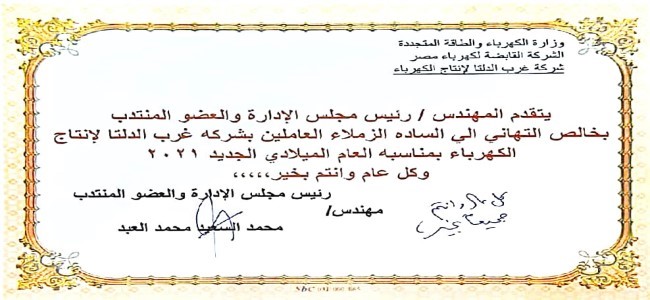 وزارة الكهرباء والطاقة المتجددة
الشركة القابضة لكهرباء مصر
شركة غرب الدلتا لإنتاج الكهرباء
يتقدم المهندس / رئيس مجلس الإدارة والعضو المنتدب
بخالص التهاني الي الساده الزملاء العاملين بشركه غرب الدلتا لإنتاج
الكهرباء بمناسبه العام الميلادي الجديد ٢٠٢١
وكل عام وانتم بخير،،،،،
رئيس مجلس الإدارة والعضو المنتدب
مهندس/
محمد السعيد محمد العبد
كل عام وانتم
جميعا بخير